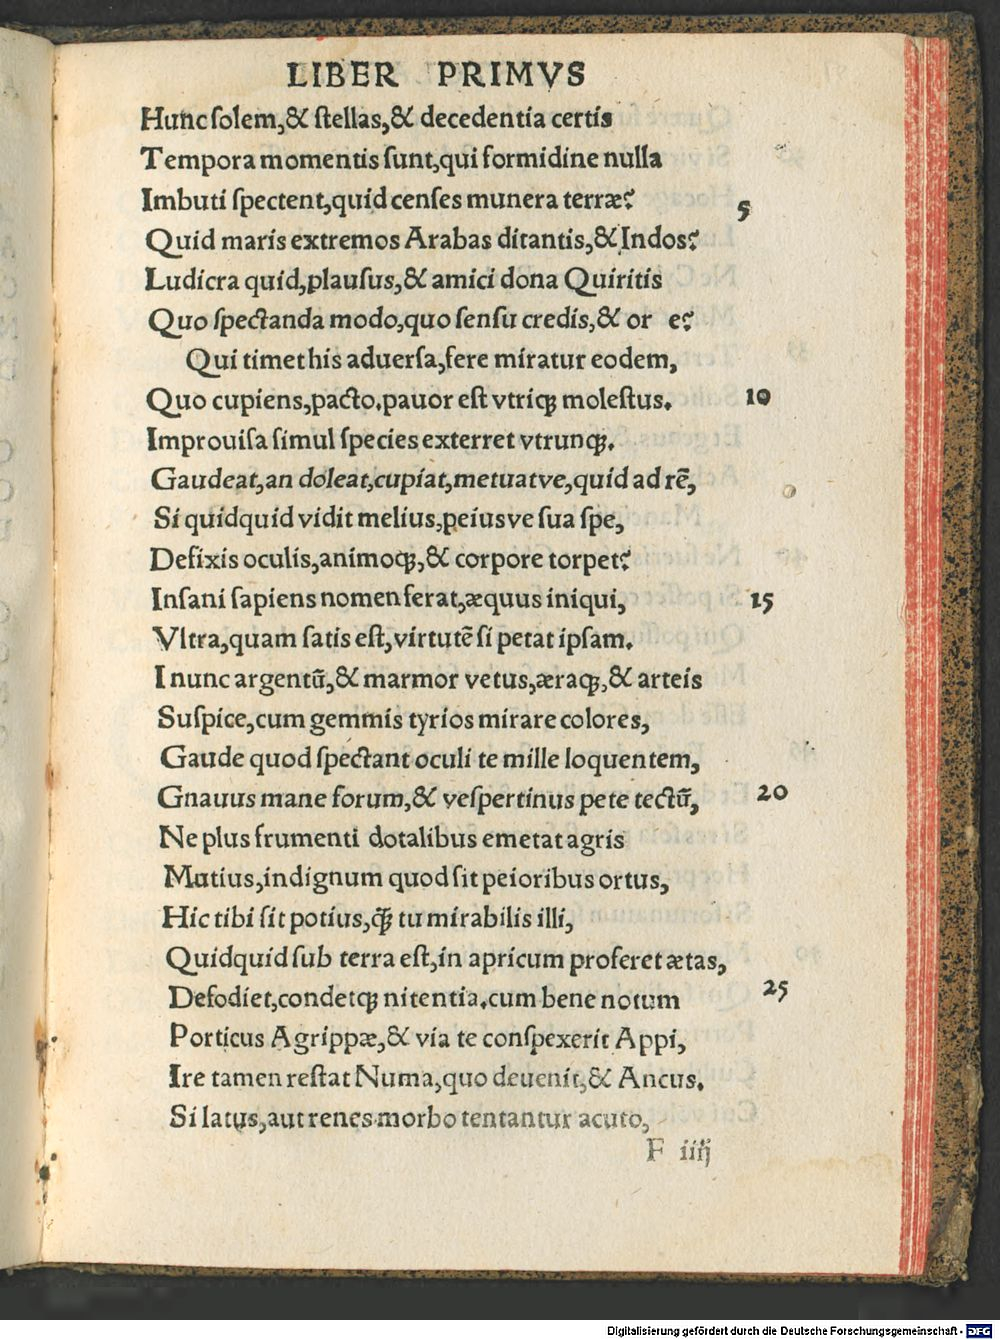 LIBER PRIMVS
Hunc ſolem,& ſtellas,& decedentia certis
Tempora momentis ſunt,qui formidine nulla
Imbuti ſpectent,quid cenſes munera terræ? 5
Quid maris extremos Arabas ditantis,& Indos?
Ludicra quid,plauſus,& amici dona Quiritis
Quo ſpectanda modo,quo ſenſu credis,& or e?
Qui timet his aduerſa,fere miratur eodem,
Quo cupiens,pacto.pauor eſt vtriqꝫ moleſtus. 10
Improuiſa ſimul ſpecies exterret vtrunqꝫ.
Gaudeat,an doleat,cupiat,metuatve,quid ad rē,
Si quidquid vidit melius,peiusve ſua ſpe,
Defixis oculis,animoqꝫ,& corpore torpet?
Inſani ſapiens nomen ferat,æquus iniqui, 15
Vltra,quam ſatis eſt,virtutē ſi petat ipſam.
I nunc argentū,& marmor vetus,æraqꝫ,& arteis
Suſpice,cum gemmis tyrios mirare colores,
Gaude quod ſpectant oculi te mille loquentem,
Gnauus mane forum,& veſpertinus pete tectū, 20
Ne plus frumenti dotalibus emetat agris
Mutius,indignum quod ſit peioribus ortus,
Hic tibi ſit potius,ꝙ̃ tu mirabilis illi,
Quidquid ſub terra eſt,in apricum proferet ætas,
Defodiet,condetqꝫ nitentia.cum bene notum 25
Porticus Agrippæ,& via te conſpexerit Appi,
Ire tamen reſtat Numa,quo deuenit,& Ancus.
Si latus,aut renes morbo tentantur acuto,
F iiij
Digitalisierung gefördert durch die Deutsche Forschungsgemeinschaft - DFG